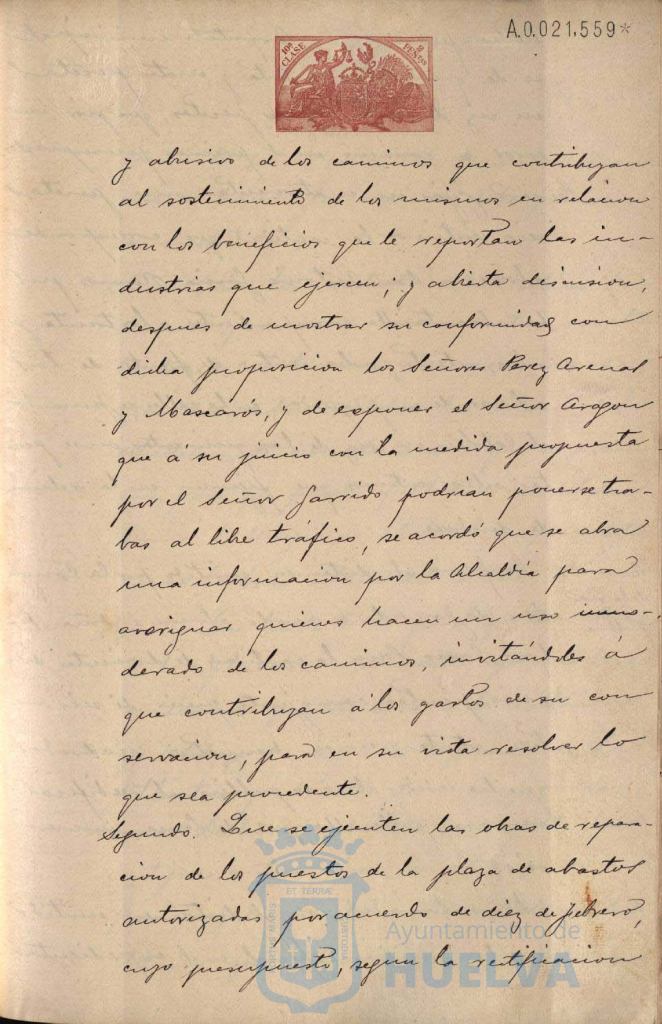 A.0.021,559*
10ª CLASE
2 PESETAS
y abusivo de los caminos que contribuyan
al sostenimiento de los mismos en relacion
con los beneficios que le reportan las in-
dustrias que ejercen; y abierta discusion,
despues de mostrar su conformidad con
dicha proposicion los Señores Perez Arenas
y Mascarós, y de exponer el Señor Aragon
que á su juicio con la medida propuesta
por el Señor Garrido podrian ponerse tra-
bas al libre tráfico, se acordó que se abra
una informacion por la Alcaldía para
averiguar quienes hacen un uso inmo-
derado de los caminos, invitándoles á
que contribuyan á los gastos de su con
servacion, para en su vista resolver lo
que sea procedente.
Segundo. Que se ejecuten las obras de repara-
cion de los puestos de la plaza de abastos
autorizadas por acuerdo de diez de febrero,
cuyo presupuesto, segun la rectificacion
ET TERRÆ
Ayuntamiento de
HUELVA